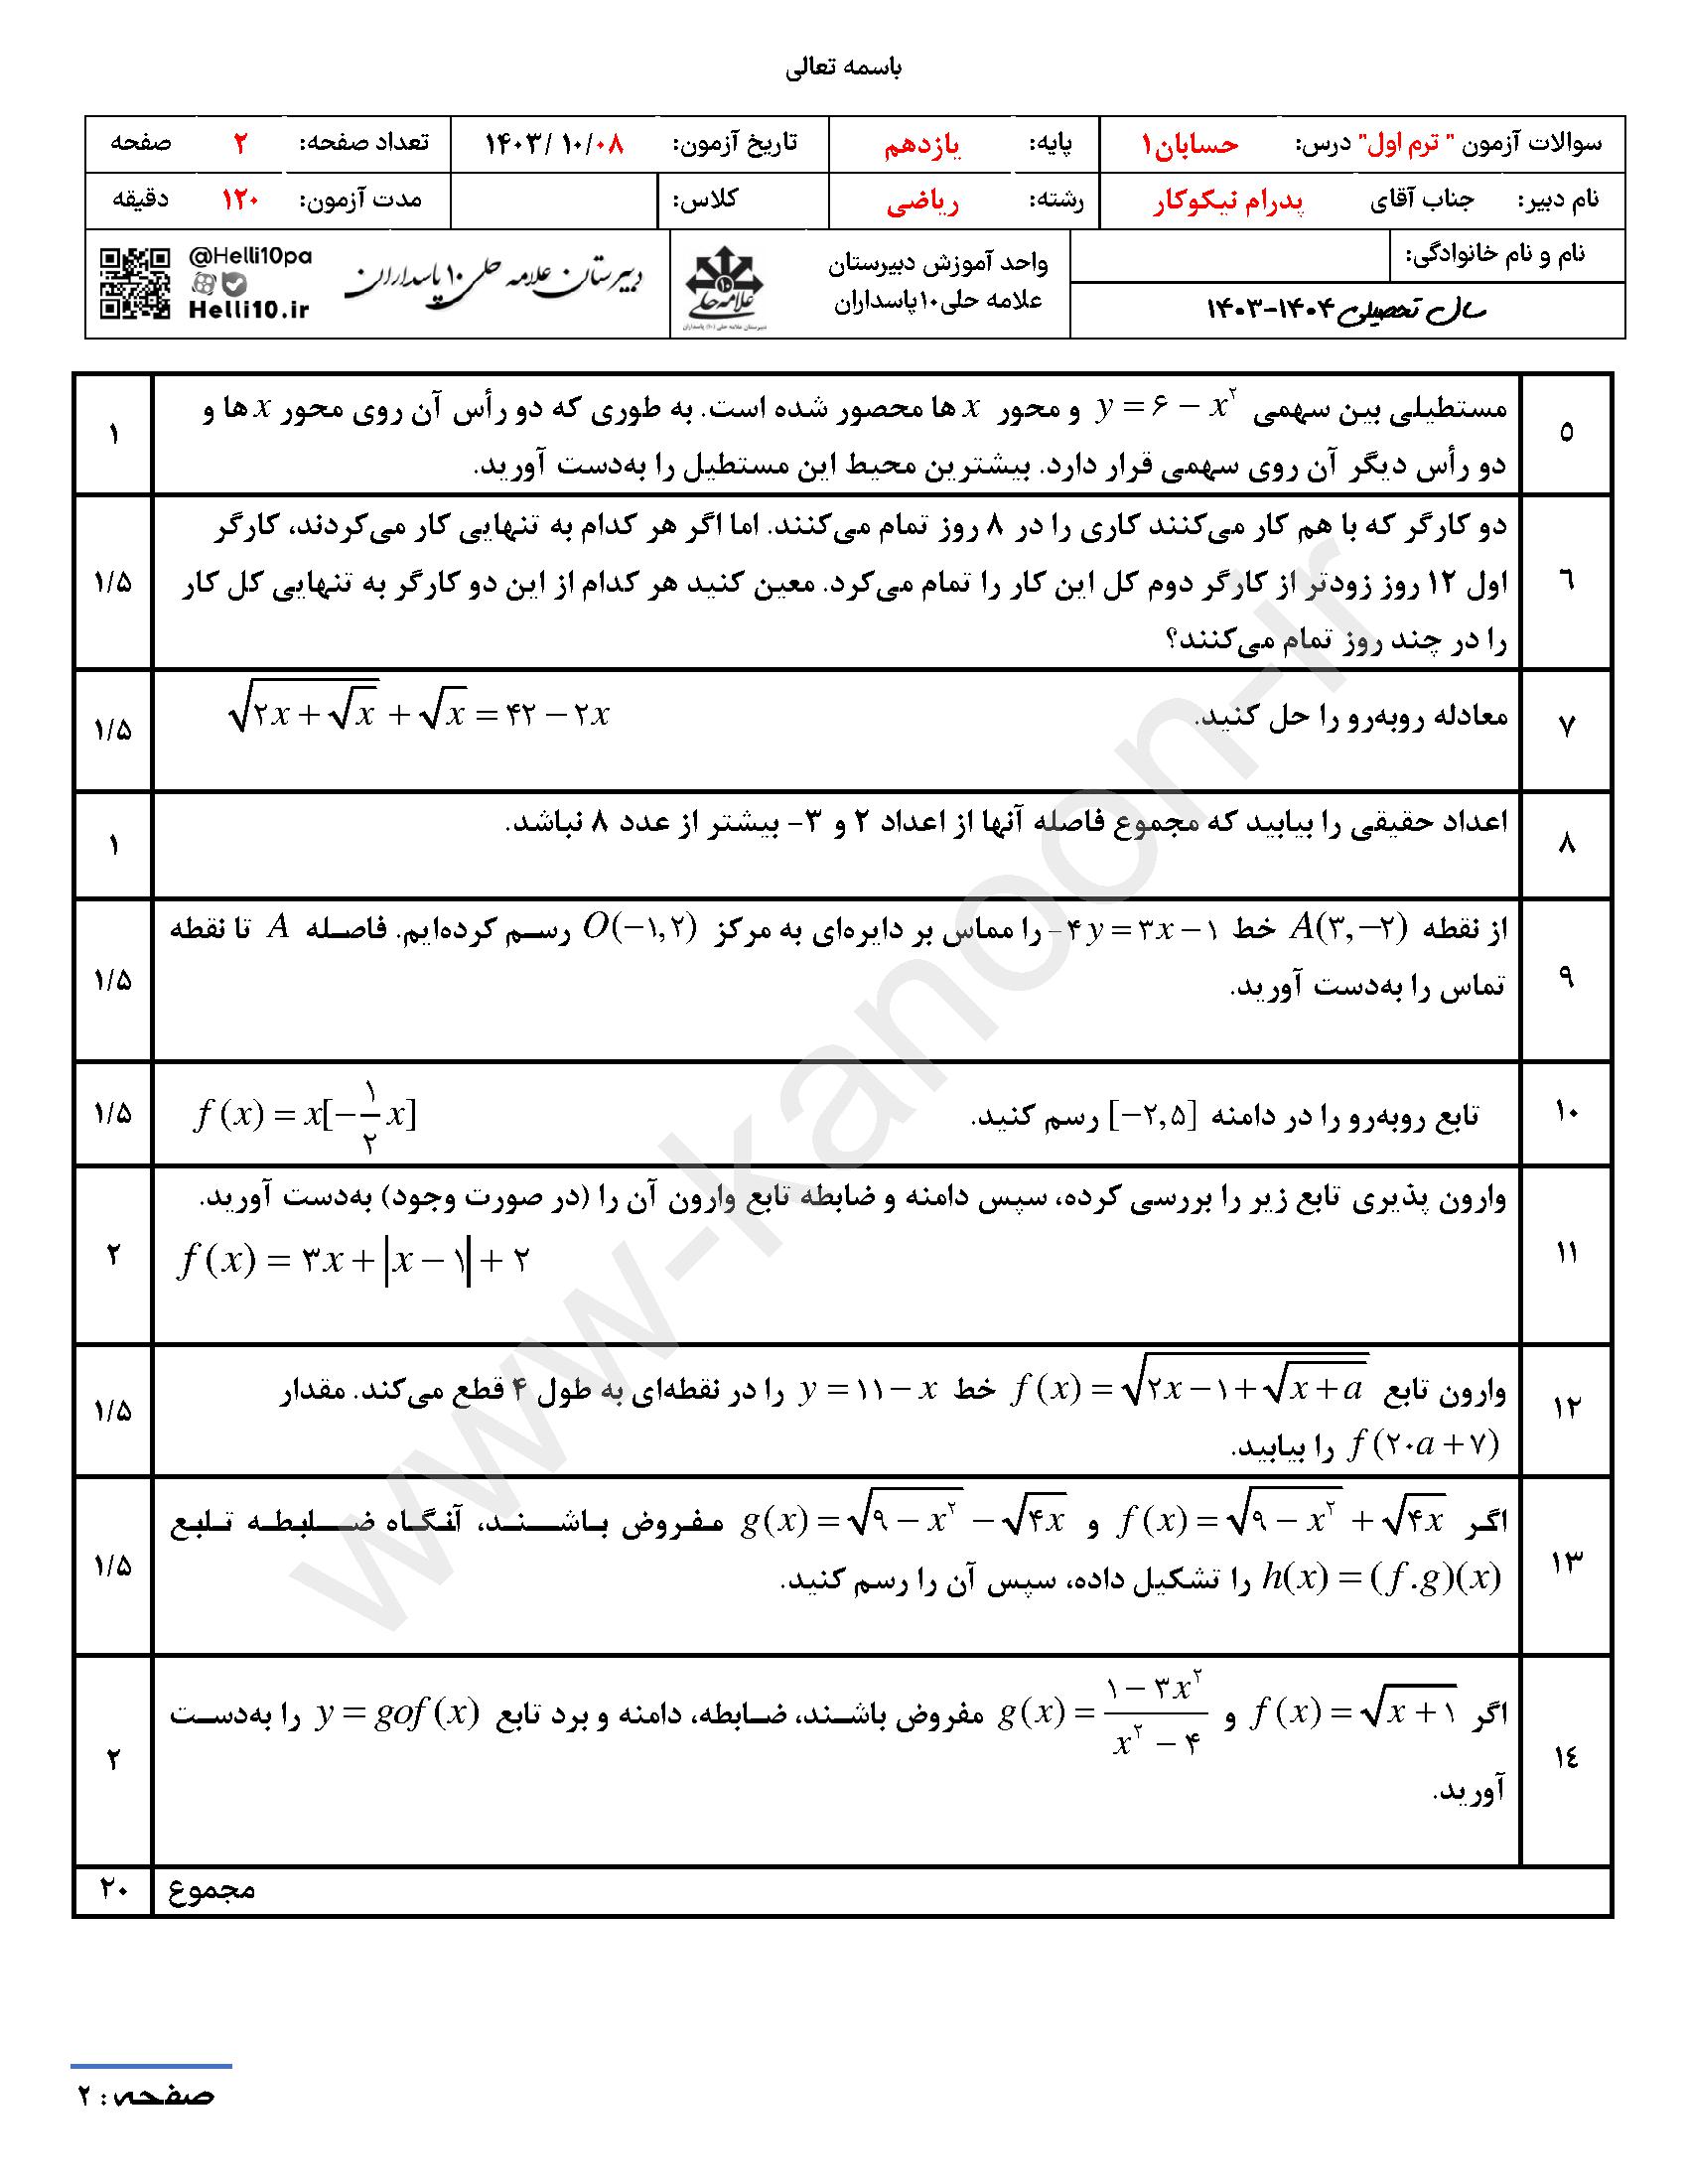 باسمه تعالی
سوالات آزمون " ترم اول" درس: حسابان۱ پایه: یازدهم تاریخ آزمون: ۱۴۰۳/ ۱۰/۰۸ تعداد صفحه: ۲ صفحه
نام دبیر: جناب آقای پدرام نیکوکار رشته: ریاضی کلاس: مدت آزمون: ۱۲۰ دقیقه
نام و نام خانوادگی:
سال تحصیلی ۱۴۰۴-۱۴۰۳
واحد آموزش دبیرستان
علامه حلی۱۰پاسداران
علامه حلی ۱۰
دبیرستان علامه حلی (۱۰) پاسداران
دبیرستان علامه حلی ۱۰ پاسداران
@Helli10pa
Helli10.ir
۵ مستطیلی بین سهمی y = ۶ − x^۲ و محور x ها محصور شده است. به طوری که دو رأس آن روی محور x ها و ۱
دو رأس دیگر آن روی سهمی قرار دارد. بیشترین محیط این مستطیل را به‌دست آورید.
٦ دو کارگر که با هم کار می‌کنند کاری را در ۸ روز تمام می‌کنند. اما اگر هر کدام به تنهایی کار می‌کردند، کارگر
اول ۱۲ روز زودتر از کارگر دوم کل این کار را تمام می‌کرد. معین کنید هر کدام از این دو کارگر به تنهایی کل کار ۱/۵
را در چند روز تمام می‌کنند؟
۷ معادله روبه‌رو را حل کنید. √(۲x + √x) + √x = ۴۲ − ۲x ۱/۵
۸ اعداد حقیقی را بیابید که مجموع فاصله آنها از اعداد ۲ و ۳- بیشتر از عدد ۸ نباشد. ۱
۹ از نقطه A(۳,−۲) خط −۴y = ۳x − ۱ را مماس بر دایره‌ای به مرکز O(−۱,۲) رسم کرده‌ایم. فاصله A تا نقطه ۱/۵
تماس را به‌دست آورید.
۱۰ تابع روبه‌رو را در دامنه [−۲,۵] رسم کنید. f(x) = x[−۱/۲ x] ۱/۵
۱۱ وارون پذیری تابع زیر را بررسی کرده، سپس دامنه و ضابطه تابع وارون آن را (در صورت وجود) به‌دست آورید. ۲
f(x) = ۳x + |x − ۱| + ۲
۱۲ وارون تابع f(x) = √(۲x − ۱ + √(x + a)) خط y = ۱۱ − x را در نقطه‌ای به طول ۴ قطع می‌کند. مقدار ۱/۵
f(۲۰a + ۷) را بیابید.
۱۳ اگر f(x) = √(۹ − x^۲) + √(۴x) و g(x) = √(۹ − x^۲) − √(۴x) مفروض باشند، آنگاه ضابطه تابع ۱/۵
h(x) = (f.g)(x) را تشکیل داده، سپس آن را رسم کنید.
١٤ اگر f(x) = √(x + ۱) و g(x) = (۱ − ۳x^۲)/(x^۲ − ۴) مفروض باشند، ضابطه، دامنه و برد تابع y = gof(x) را به‌دست ۲
آورید.
مجموع ۲۰
صفحه: ۲
www-kanoon-ir